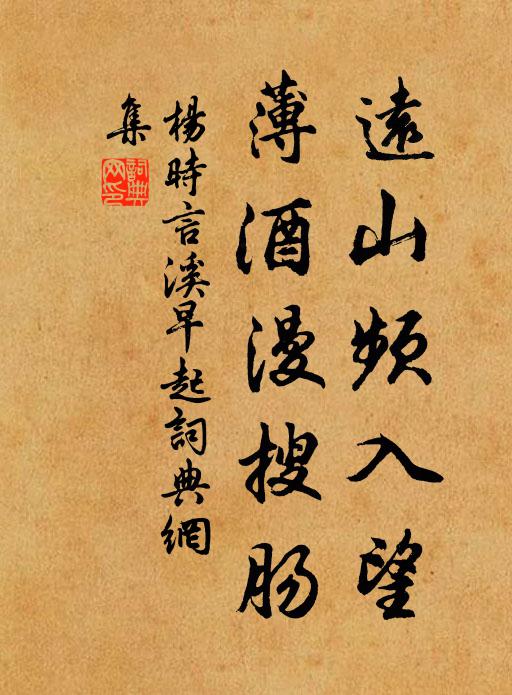 遠山頻入望
薄酒漫搜肠
楊時言溪早起詞典網
集
詞典网印